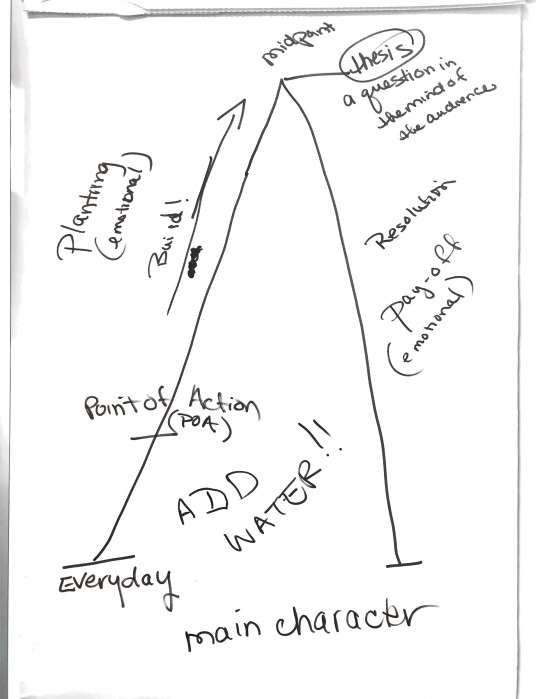 midpoint
thesis
a question in
the mind of
the audience
Planting
(emotional)
Build!
Resolution
Pay-off
(emotional)
Point of Action
(POA)
ADD
WATER!!
Everyday
main character